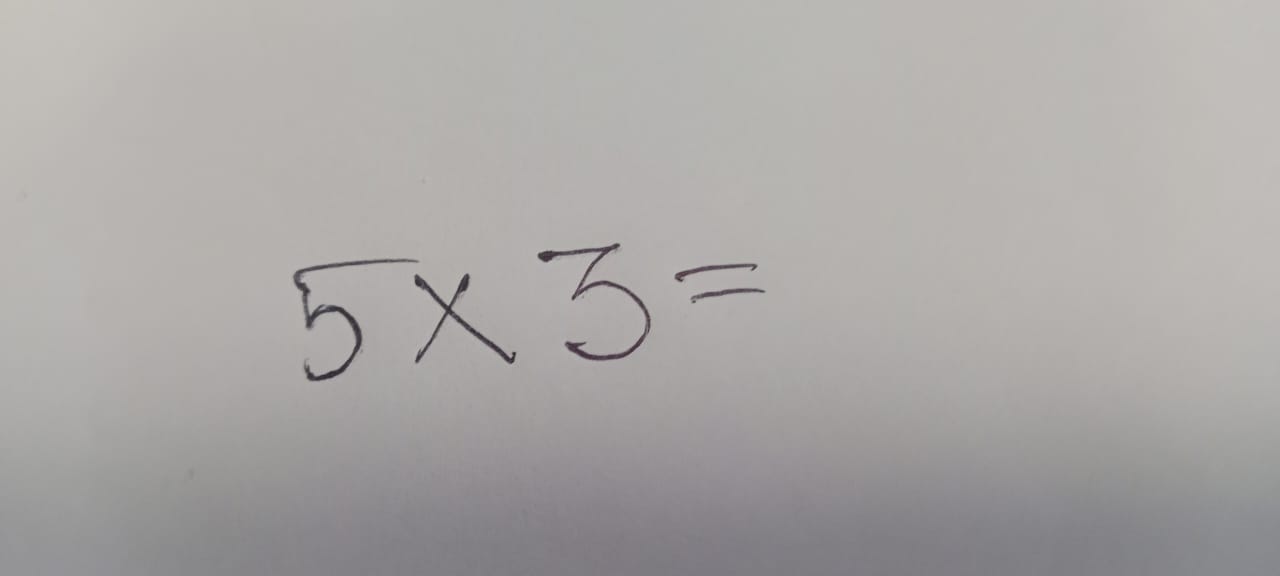 5 × 3 =